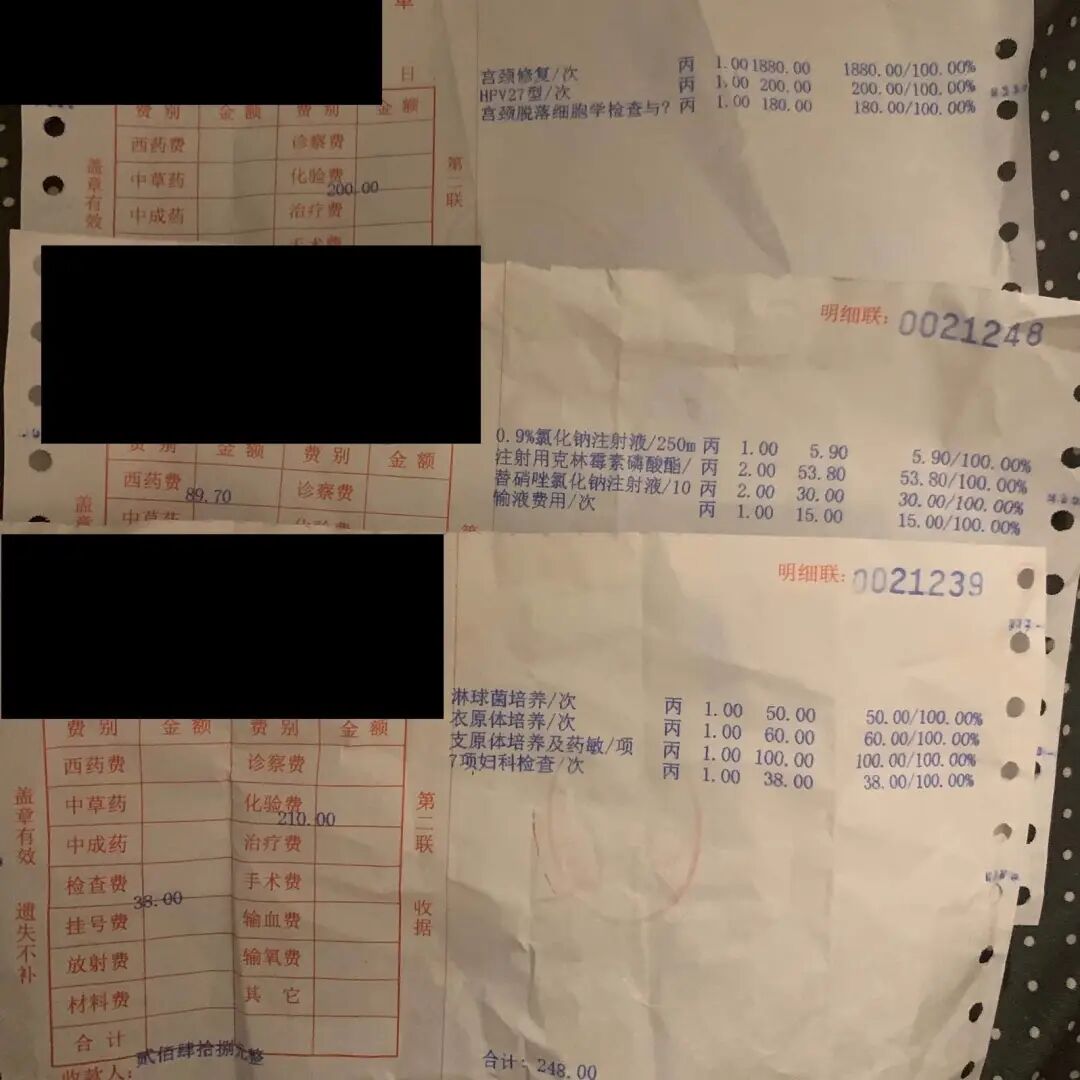 章
日
宫颈修复/次 丙 1.00 1880.00 1880.00/100.00%
HPV27型/次 丙 1.00 200.00 200.00/100.00%
宫颈脱落细胞学检查与? 丙 1.00 180.00 180.00/100.00%
费 别 金 额 费 别 金 额
西药费 诊察费
中草药 化验费 200.00
中成药 治疗费
手术费
盖章有效
第二联
明细联: 0021248
0.9%氯化钠注射液/250m 丙 1.00 5.90 5.90/100.00%
注射用克林霉素磷酸酯/ 丙 2.00 53.80 53.80/100.00%
替硝唑氯化钠注射液/10 丙 2.00 30.00 30.00/100.00%
输液费用/次 丙 1.00 15.00 15.00/100.00%
费 别 金 额 费 别 金 额
西药费 89.70 诊察费
中草药 化验费
盖章
第
明细联: 0021239
淋球菌培养/次 丙 1.00 50.00 50.00/100.00%
衣原体培养/次 丙 1.00 60.00 60.00/100.00%
支原体培养及药敏/项 丙 1.00 100.00 100.00/100.00%
7项妇科检查/次 丙 1.00 38.00 38.00/100.00%
费 别 金 额 费 别 金 额
西药费 诊察费
中草药 化验费 210.00
中成药 治疗费
检查费 38.00 手术费
挂号费 输血费
放射费 输氧费
材料费 其 它
合 计 贰佰肆拾捌元整
收款人:
合计: 248.00
盖章有效 遗失不补
第二联 收据